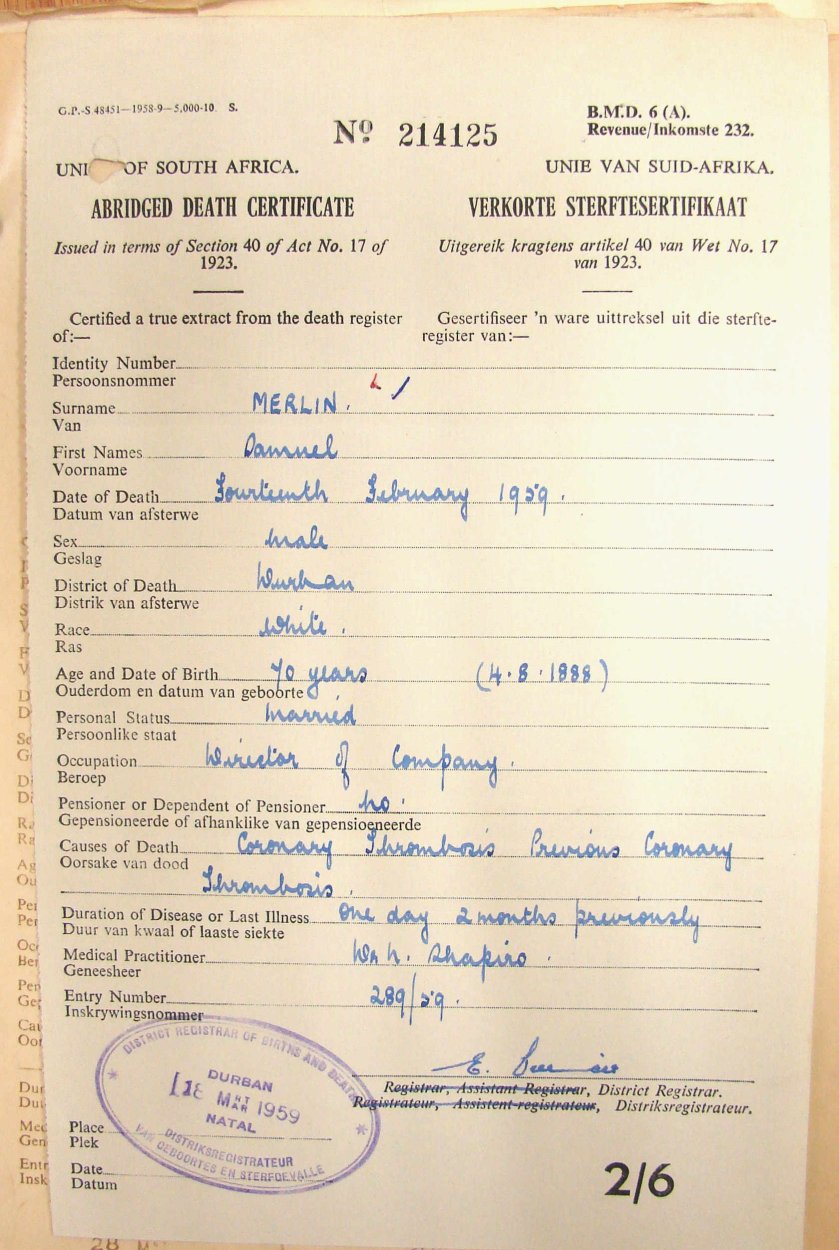 G.P.-S 48451—1958-9—5,000-10. S.
B.M.D. 6 (A).
Revenue/Inkomste 232.
Nº 214125
UNI OF SOUTH AFRICA.
UNIE VAN SUID-AFRIKA.
ABRIDGED DEATH CERTIFICATE
VERKORTE STERFTESERTIFIKAAT
Issued in terms of Section 40 of Act No. 17 of
1923.
Uitgereik kragtens artikel 40 van Wet No. 17
van 1923.
Certified a true extract from the death register
of:—
Gesertifiseer 'n ware uittreksel uit die sterfte-
register van:—
Identity Number
Persoonsnommer
Surname MERLIN.
Van
First Names Samuel
Voorname
Date of Death Fourteenth February 1959.
Datum van afsterwe
Sex Male
Geslag
District of Death Durban
Distrik van afsterwe
Race White.
Ras
Age and Date of Birth 70 years (4.8.1888)
Ouderdom en datum van geboorte
Personal Status Married
Persoonlike staat
Occupation Director of Company.
Beroep
Pensioner or Dependent of Pensioner No.
Gepensioneerde of afhanklike van gepensioeneerde
Causes of Death Coronary Thrombosis Previous Coronary
Oorsake van dood
Thrombosis.
Duration of Disease or Last Illness One day 2 months previously
Duur van kwaal of laaste siekte
Medical Practitioner Dr N. Shapiro.
Geneesheer
Entry Number 289/59.
Inskrywingsnommer
E.
Registrar, Assistant Registrar, District Registrar.
Registrateur, Assistent-registrateur, Distriksregistrateur.
DISTRICT REGISTRAR OF BIRTHS AND DEATHS
DURBAN
18 MRT MAR 1959
NATAL
DISTRIKSREGISTRATEUR
VAN GEBOORTES EN STERFGEVALLE
Place
Plek
Date
Datum
2/6